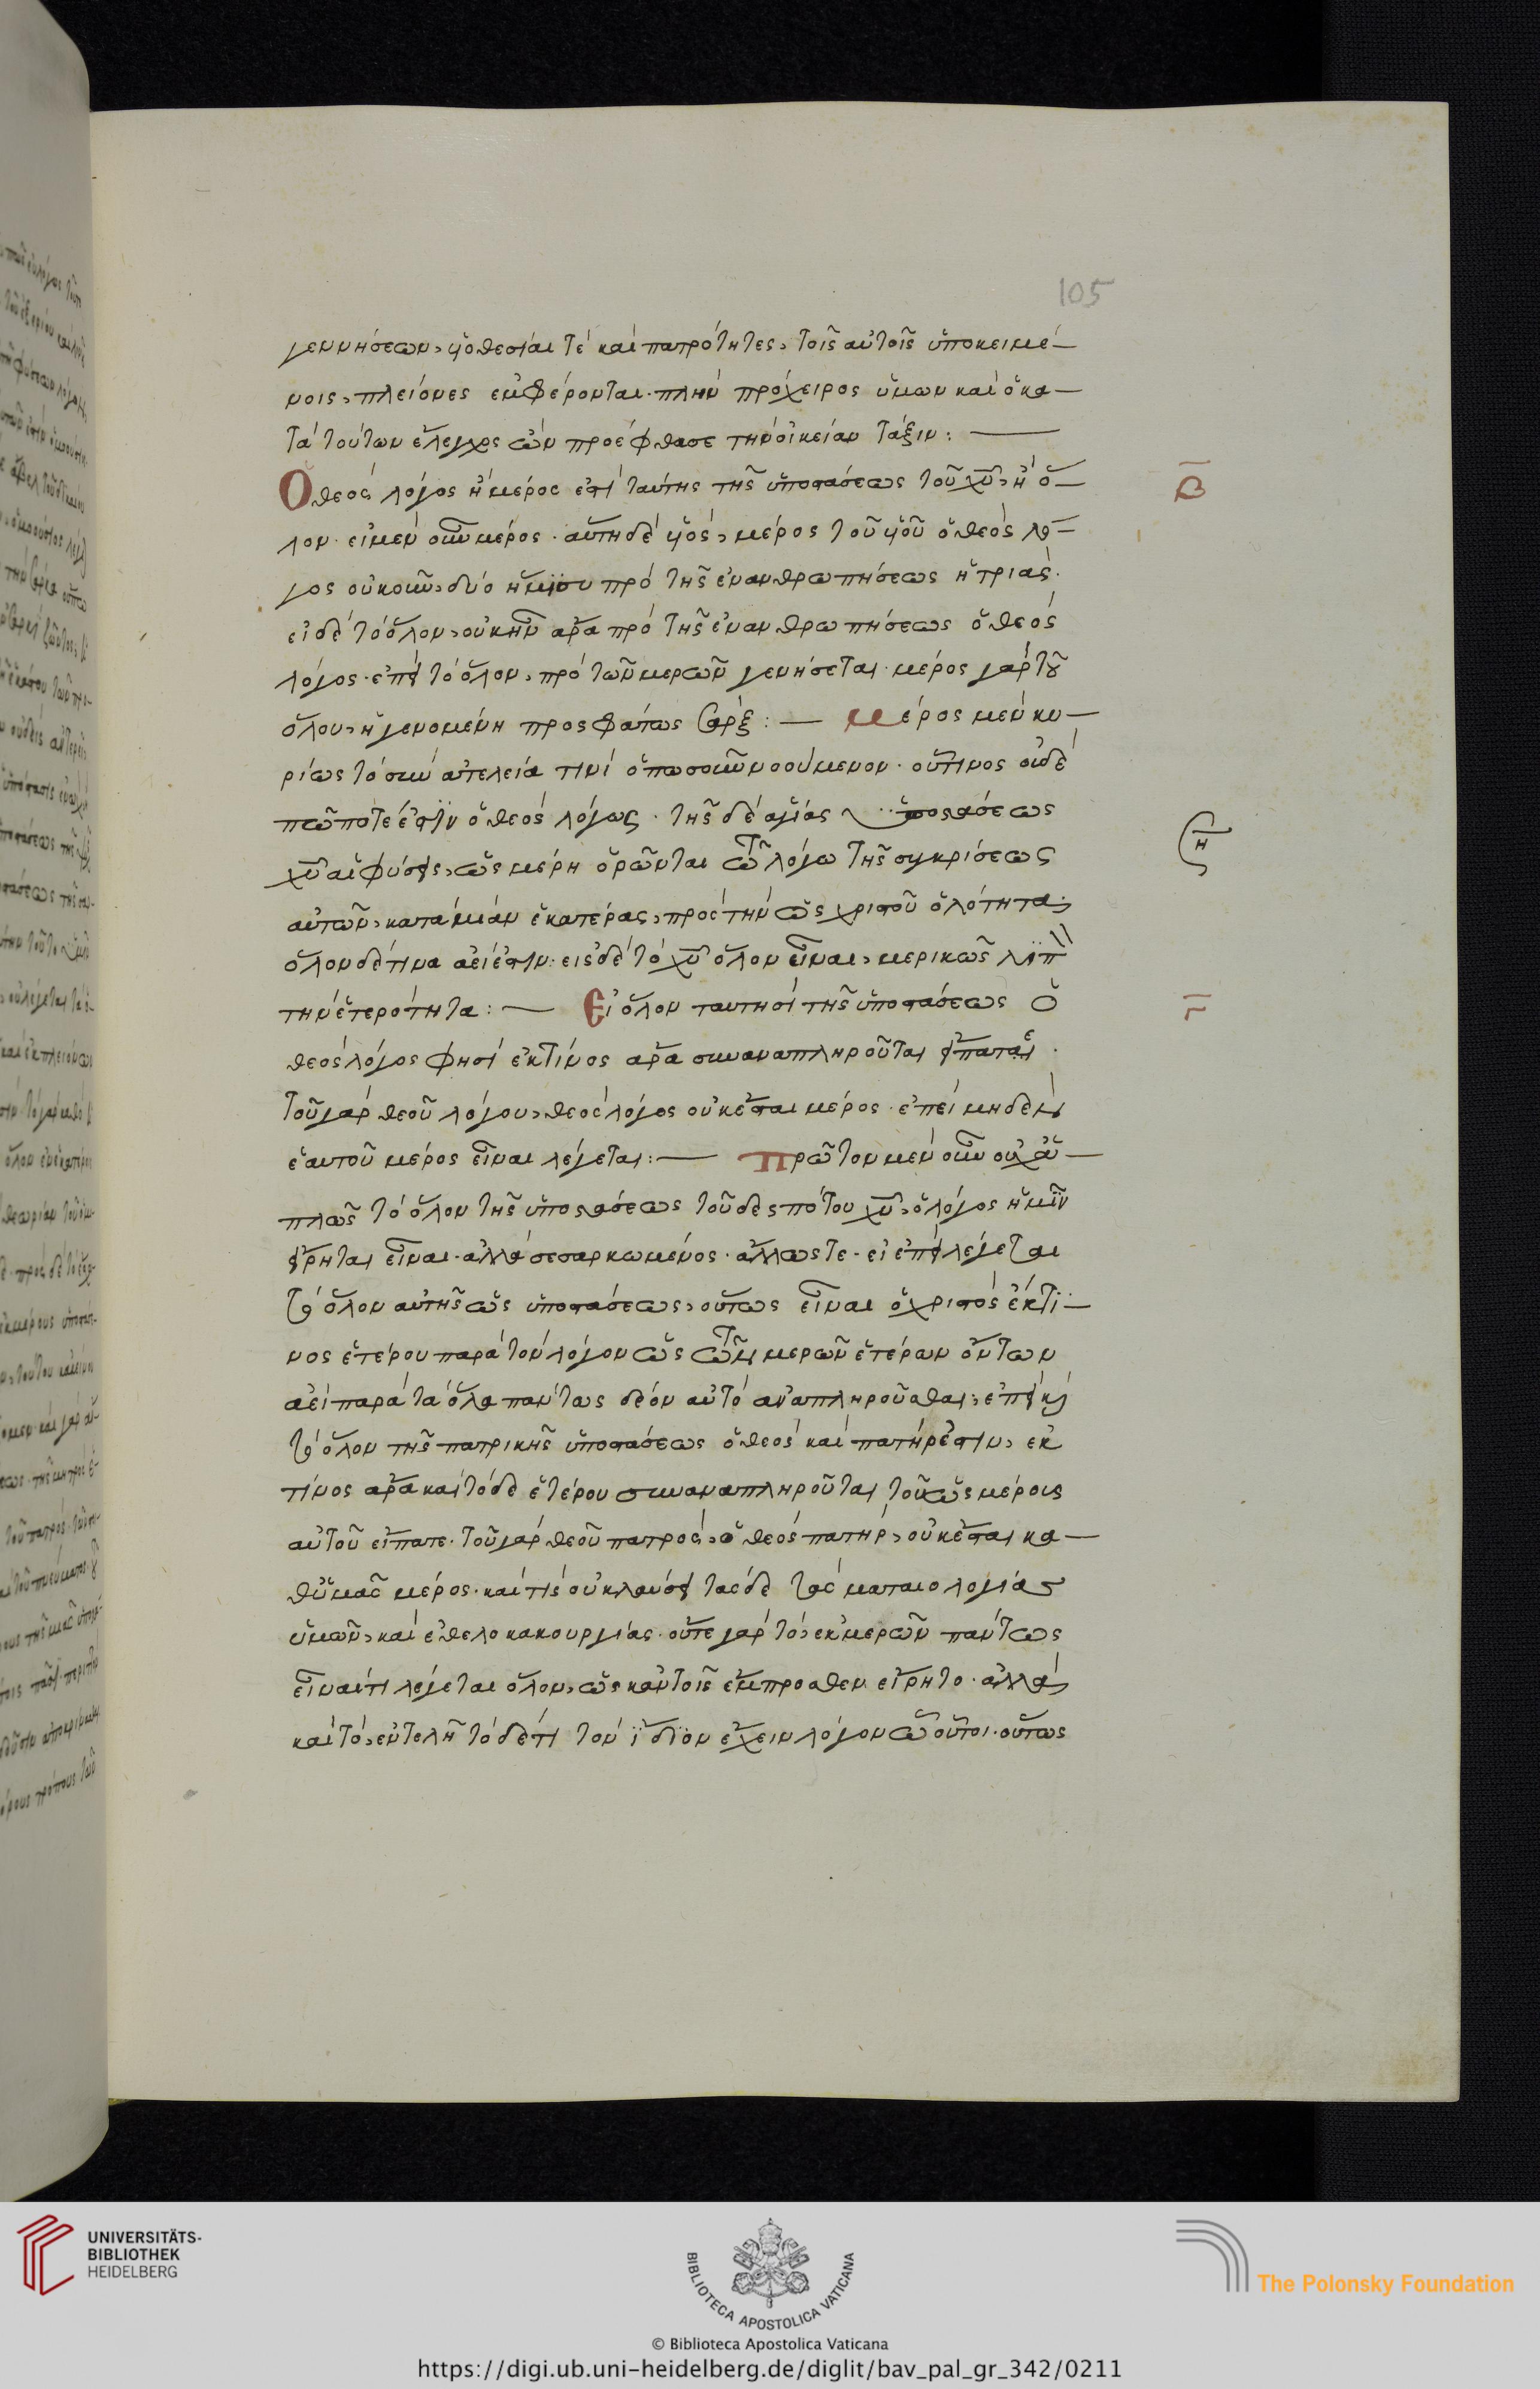 105
γεννήσεων, υἱοθεσίαι τὲ καὶ πατρότητες, τοῖς αὐτοῖς ὑποκειμέ-
νοις, πλείονες ἐμφέρονται. πλὴν πρόχειρος ὑμων καὶ ὁ κα-
τὰ τούτων ἔλεγχος ὧν προέφθασε τὴν οἰκείαν τάξιν:
Ὁ θεὸς λόγος ἢ μέρος ἐστὶ ταύτης τῆς ὑποστάσεως τοῦ χῦ, ἢ ὅ-
λον. εἰ μὲν οὖν μέρος. αὕτη δὲ υἱός, μέρος τοῦ υἱοῦ ὁ θεὸς λό-
γος οὐκοῦν, δύο ἥμισυ πρὸ τῆς ἐνανθρωπήσεως ἡ τριάς.
εἰ δὲ τὸ ὅλον, οὐκ ἦν ἄρα πρὸ τῆς ἐνανθρωπήσεως ὁ θεὸς
λόγος. ἐπεὶ τὸ ὅλον, πρὸ τῶν μερῶν γενήσεται. μέρος γὰρ τοῦ
ὅλου, ἡ γενομένη προσφάτως σάρξ: Μέρος μὲν κυ-
ρίως τὸ σὺν ἀτελεία τινὶ ὁπωσοῦν νοούμενον. οὕτινος οὐδὲ
πώποτέ ἐστιν ὁ θεὸς λόγως. τῆς δὲ ἁγίας ὑποστάσεως
χῦ αἱ φύσεις, ὡς μέρη ὁρῶνται τῶ λόγω τῆς συγκρίσεως
αὐτῶν, κατὰ μίαν ἑκατέρας, πρὸς τὴν ὡς χριστοῦ ὁλότητα,
ὅλον δέ τινα ἀεί ἐστιν: εἰς δὲ τὸ χῦ ὅλον εἶναι, μερικῶς
τὴν ἑτερότητα: Εἰ ὅλον ταυτησὶ τῆς ὑποστάσεως ὁ
θεὸς λόγος φησὶ ἐκ τίνος ἄρα συναναπληροῦται εἴπατε.
τοῦ γὰρ θεοῦ λόγου, θεὸς λόγος οὐκ ἔσται μέρος. ἐπεὶ μηδὲν
ἑαυτοῦ μέρος εἶναι λέγεται: Πρῶτον μὲν οὖν οὐχ ἁ-
πλῶς τὸ ὅλον τῆς ὑποστάσεως τοῦ δεσπότου χῦ, ὁ λόγος ἡμῖν
εἴρηται εἶναι. ἀλλὰ σεσαρκωμένος. ἄλλωςτε. εἰ ἐπεὶ λέγεται
τὸ ὅλον αὐτῆς ὡς ὑποστάσεως, οὕτως εἶναι ὁ χριστὸς ἔκ τι-
νος ἑτέρου παρὰ τὸν λόγον ὡς τῶν μερῶν ἑτέρων ὄντων
ἀεὶ παρὰ τὰ ὅλα πάντως δέον αὐτὸ ἀναπληροῦσθαι, ἐπεὶ καὶ
τὸ ὅλον τῆς πατρικῆς ὑποστάσεως ὁ θεὸς καὶ πατήρ ἐστιν, ἐκ
τίνος ἄρα καὶ τόδε ἑτέρου συναναπληροῦται τοῦ ὡς μέρους
αὐτοῦ εἴπατε. τοῦ γὰρ θεοῦ πατρὸς, ὁ θεὸς πατὴρ, οὐκ ἔσται κα-
θ' ὑμᾶς μέρος. καὶ τίς οὐ κλαύσει τάςδε τὰς ματαιολογίας
ὑμῶν, καὶ ἐθελοκακουργίας. οὔτε γὰρ τὸ, ἐκ μερῶν πάντως
εἶναί τι λέγεται ὅλον, ὡς κἂν τοῖς ἔμπροσθεν εἴρητο. ἀλλὰ,
καὶ τὸ, ἐντελῆ τὸ δέ τι τὸν ἴδιον ἔχειν λόγον ὦ οὗτοι. οὕτως
β
γ
UNIVERSITÄTS-
BIBLIOTHEK
HEIDELBERG
BIBLIOTECA APOSTOLICA VATICANA
The Polonsky Foundation
© Biblioteca Apostolica Vaticana
https://digi.ub.uni-heidelberg.de/diglit/bav_pal_gr_342/0211